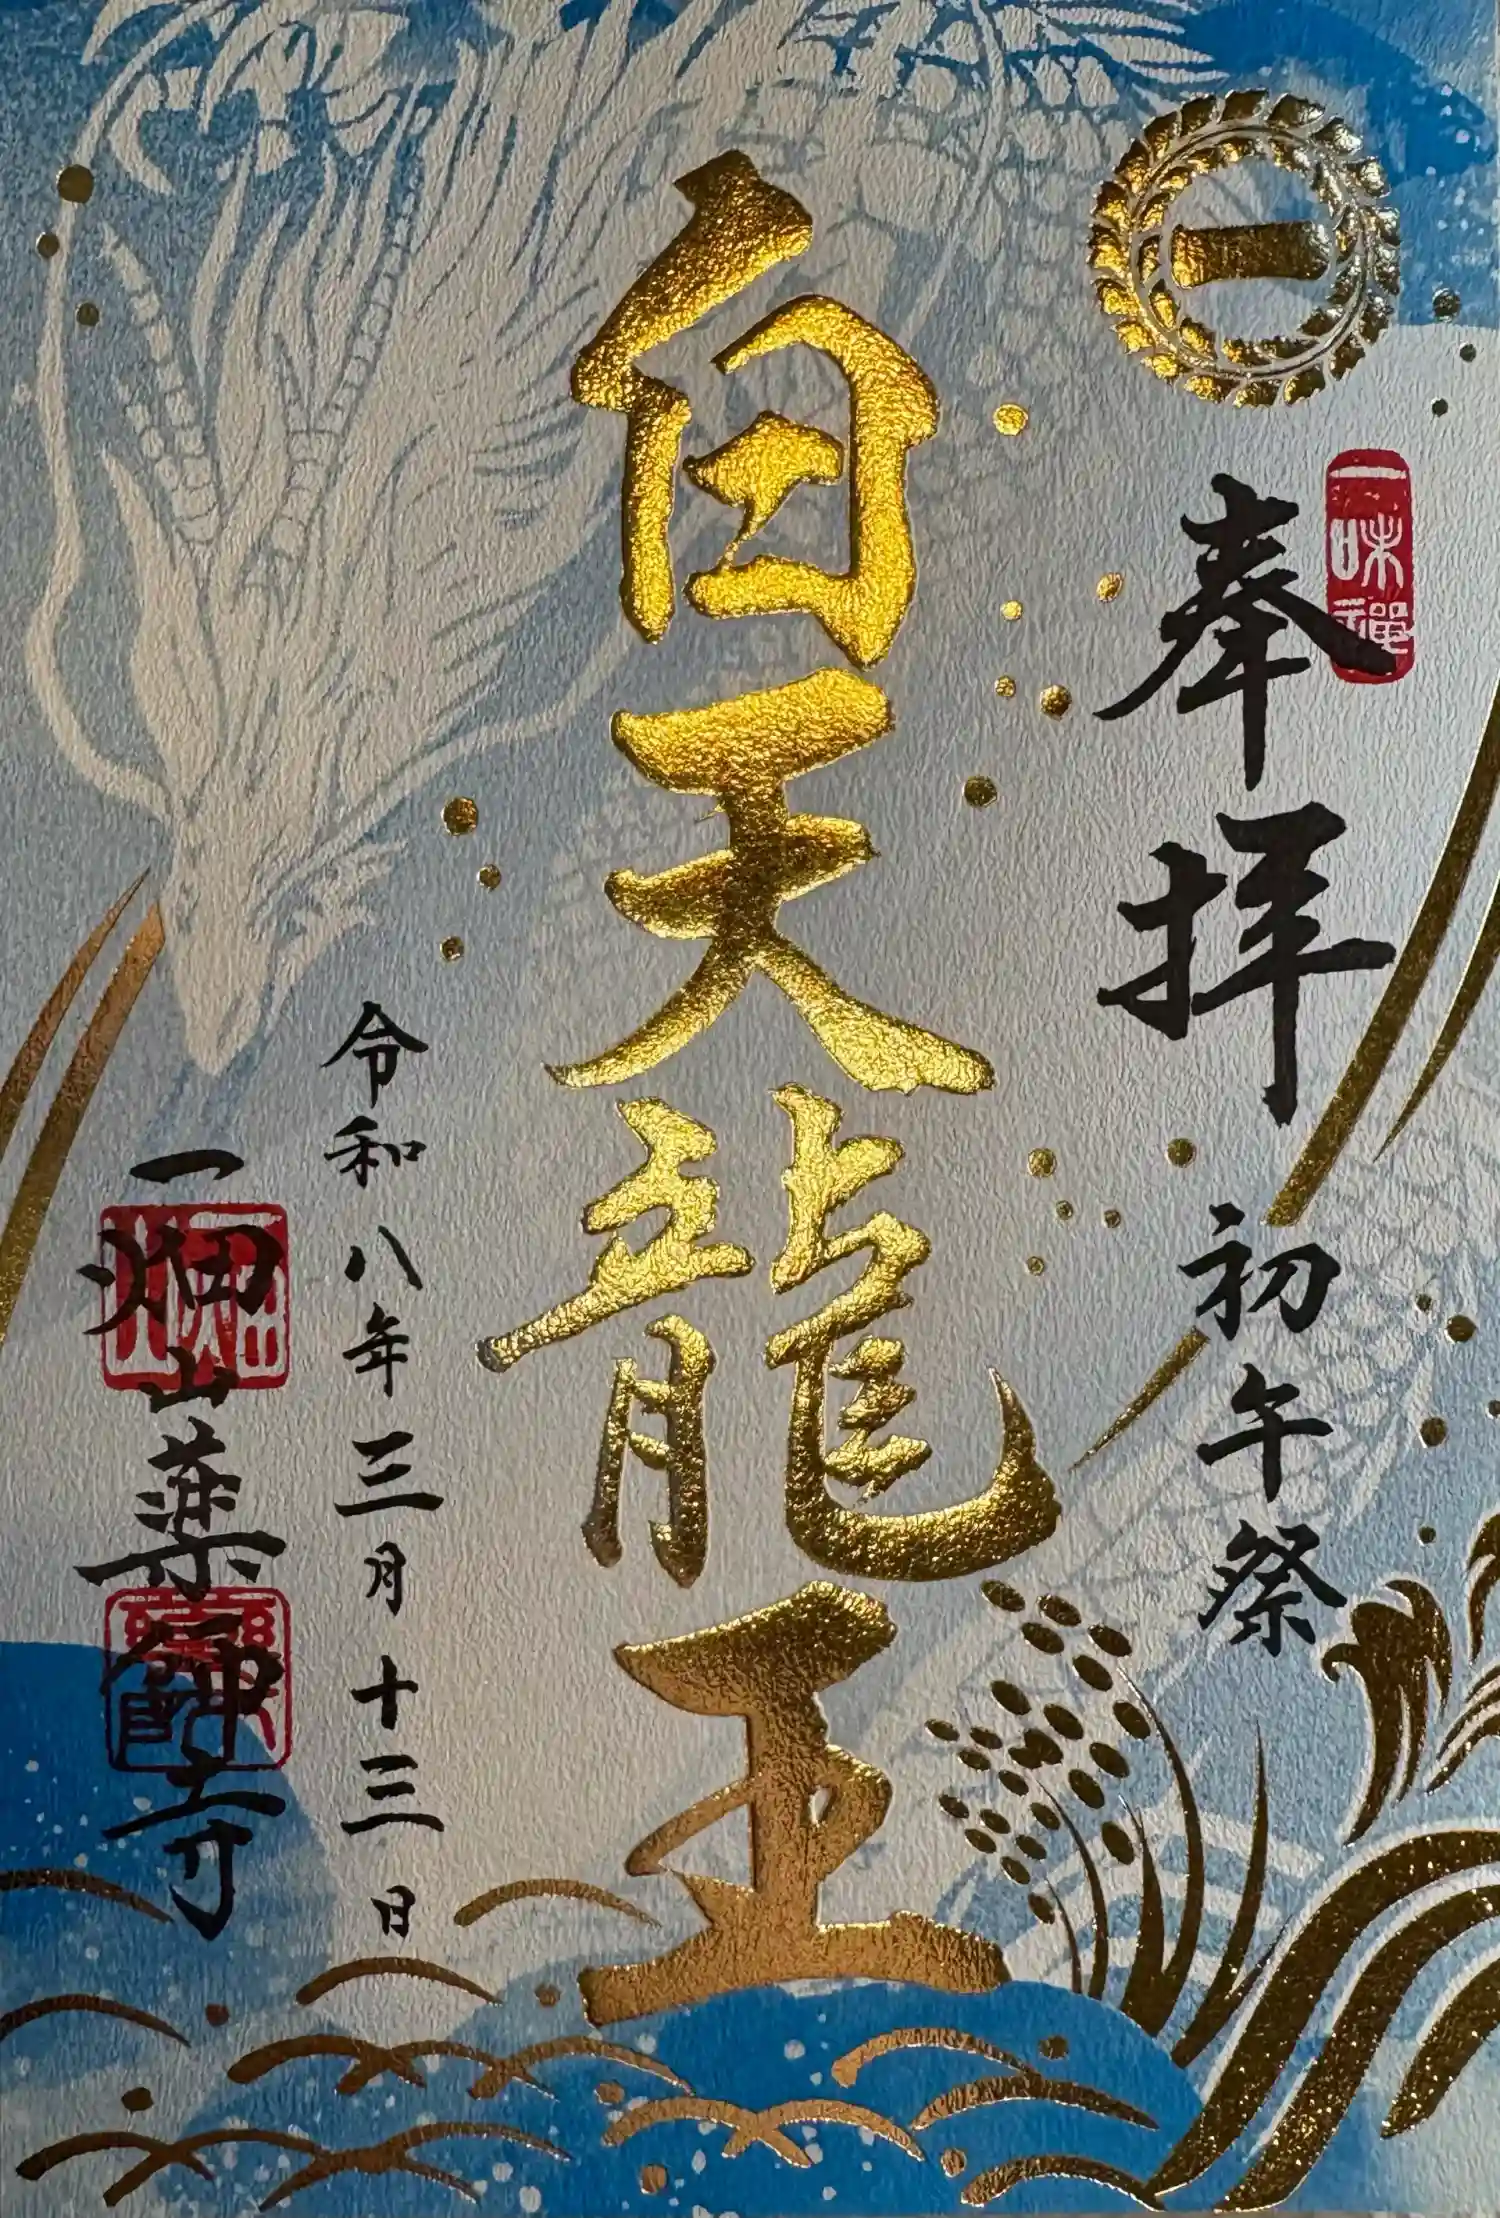 一
一味禅
奉拝
初午祭
白天龍王
令和八年三月十三日
一畑山薬師寺